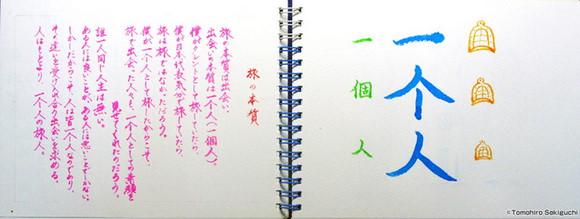 一个人
一個人
旅の本質
旅の本質は出会い。
出会いの本質は一个人(一個人)。
僕がタレントとして旅していたら、
僕が日本代表気分で旅していたら、
旅は旅ではなかっただろう。
僕が一个人として旅したからこそ、
旅で出会った人も、一个人としての素顔を
見せてくれたのだろう。
誰一人同じ人生は無い。
ある人には良いことが、ある人には悪いことでしかない。
しかしだからこそ、人は皆一个人なのであり、
その違いを受け入れ合う出会いを求める。
人はもとより、一个人の旅人。
©Tomohiro Sekiguchi